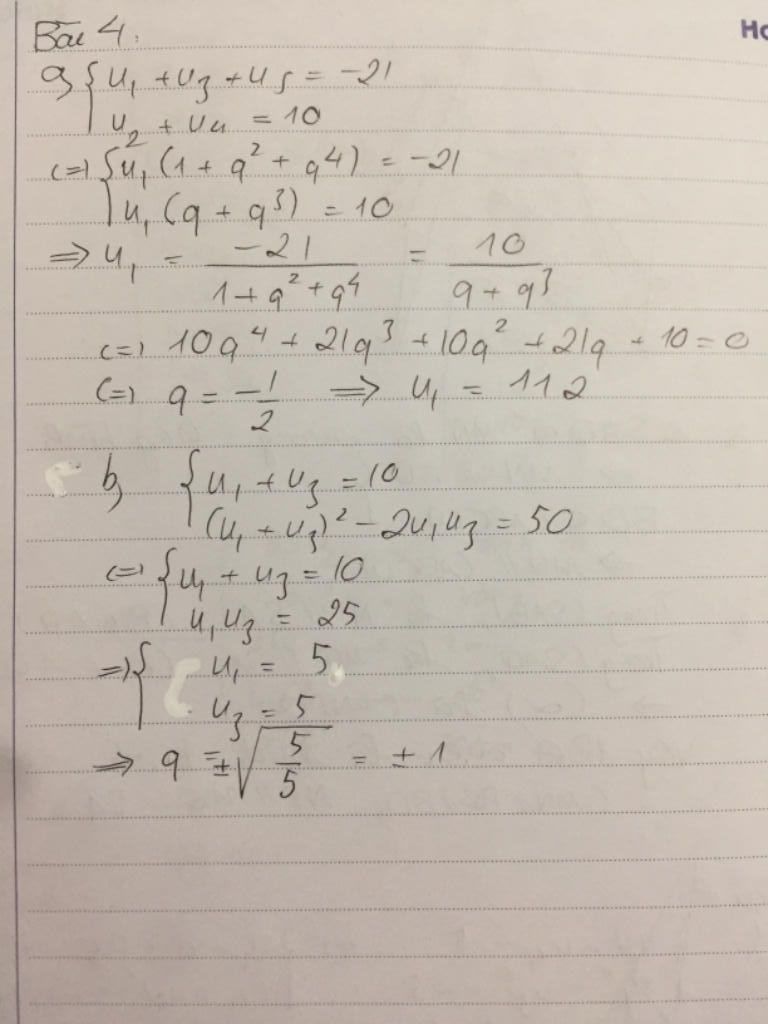 Ho
Bài 4.
a, { u₁ + u₃ + u₅ = -21
u₂ + u₄ = 10
(=) { u₁ (1 + q² + q⁴) = -21
u₁ (q + q³) = 10
=> u₁ = -21 / (1 + q² + q⁴) = 10 / (q + q³)
(=) 10q⁴ + 21q³ + 10q² + 21q + 10 = 0
(=) q = -1/2 => u₁ = 112
b, { u₁ + u₃ = 10
(u₁ + u₃)² - 2u₁u₃ = 50
(=) { u₁ + u₃ = 10
u₁u₃ = 25
=> { u₁ = 5
u₃ = 5
=> q = ±√(5/5) = ± 1